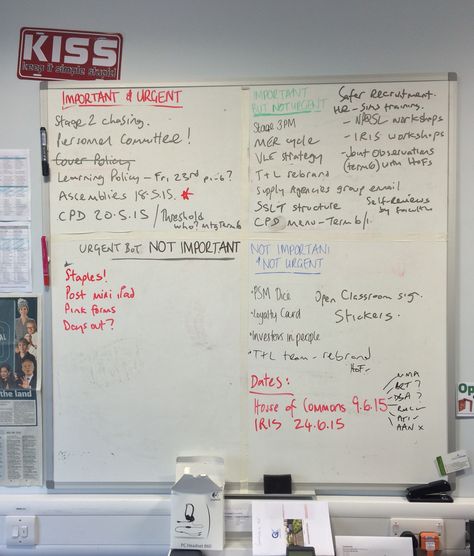 KISS
keep it simple stupid
IMPORTANT & URGENT
Stage 2 chasing.
Personnel Committee!
Cover Policy
Learning Policy - Fri 23rd
Assemblies 18.5.15 *
CPD 20.5.15 / Threshold
who? mtg Term 6
IMPORTANT
BUT NOT URGENT
Stage 3PM
MER cycle
VLE strategy
T+L rebrand
Supply Agencies group email
SSLT structure
CPD menu - Term 6/1
Safer Recruitment.
HR - Sims training.
- NPQSL workshops
- IRIS workshops
- Joint Observations
(term 6) with HoFs
Self-Reviews
by faculty
URGENT BUT NOT IMPORTANT
Staples!
Post mini iPad
Pink forms
Days out?
NOT IMPORTANT
& NOT URGENT
• PSM Dice
• Loyalty Card
• Investors in people
• T+L team - rebrand
HoF
Open Classroom sig.
Stickers.
Dates:
House of Commons 9.6.15
IRIS 24.6.15
NMA
BRT ?
DBA ?
AAN x
the land
Op
PC Headset 860